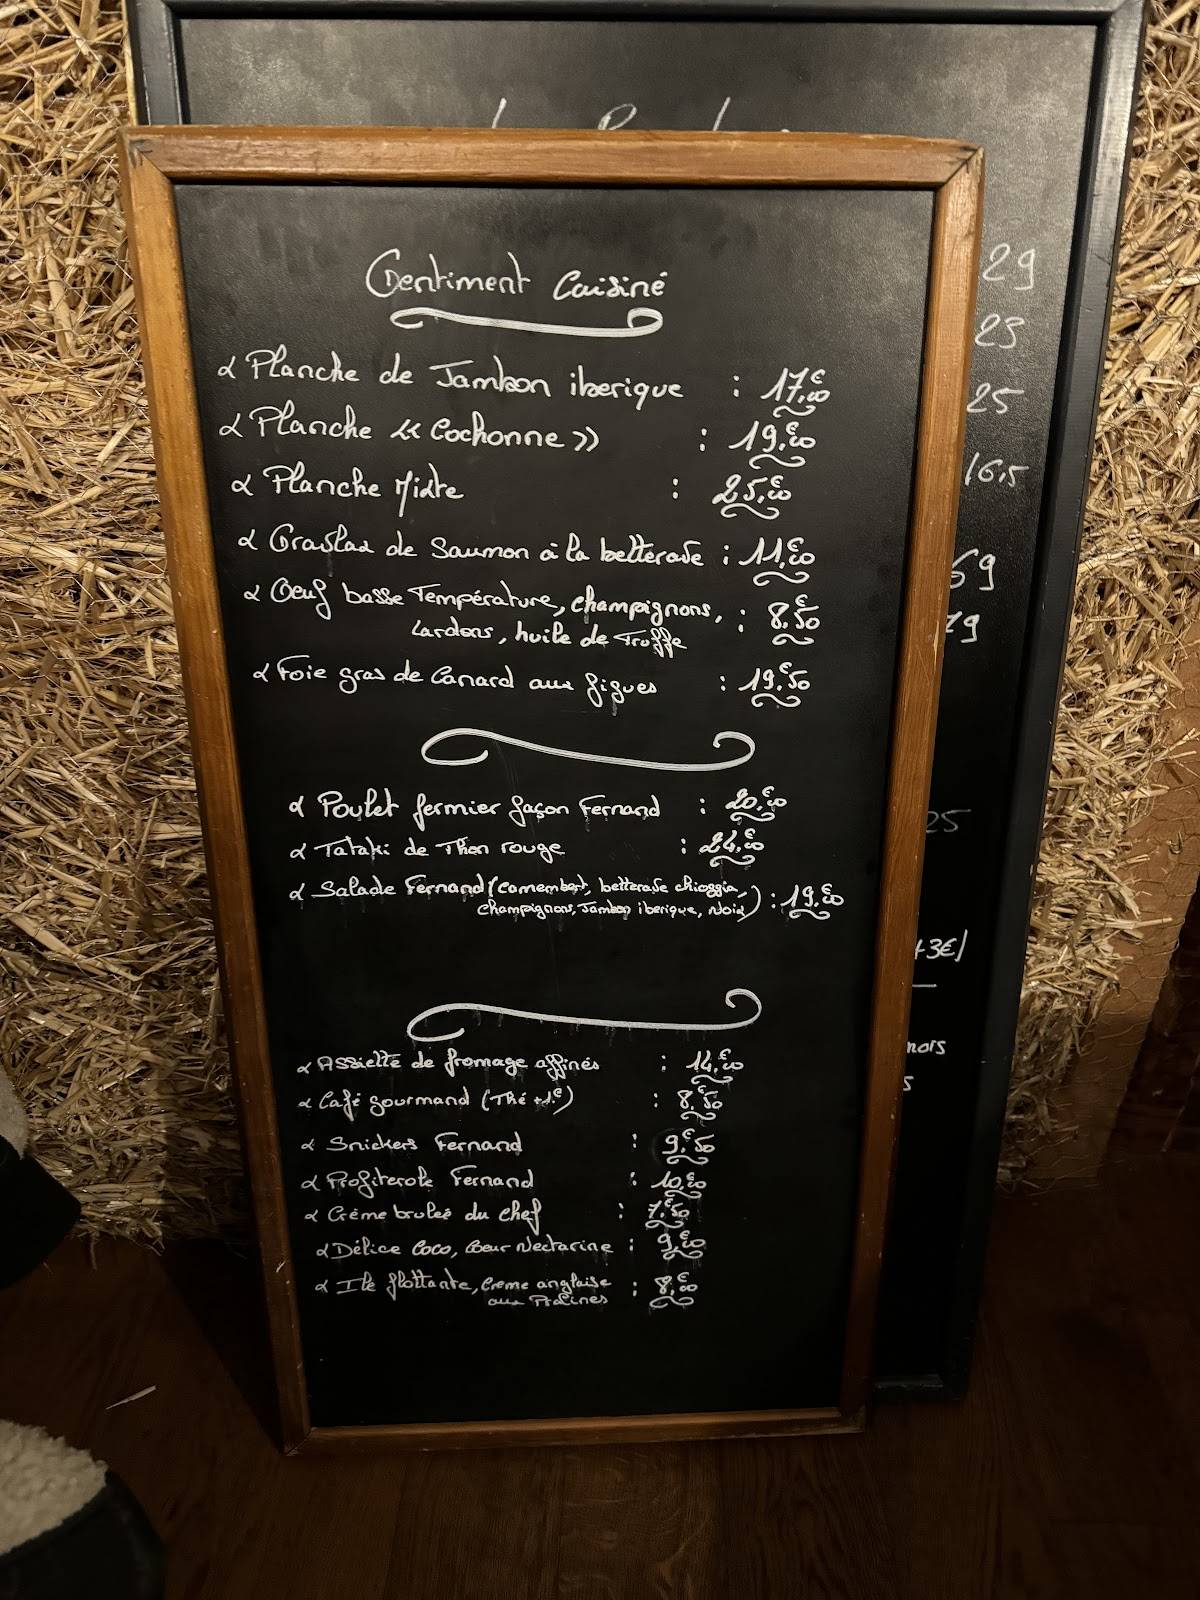 Gentiment Cuisiné
Planche de Jambon iberique : 17,€00
Planche « Cochonne » : 19,€00
Planche Mixte : 25,€00
Gravlax de Saumon à la betterave : 11,€00
Oeuf basse Température, champignons, : 8,€50
Lardons, huile de Truffe
Foie gras de Canard aux figues : 19,€50
Poulet fermier façon Fernand : 20,€00
Tataki de Thon rouge : 24,€00
Salade Fernand (Camembert, betterave chioggia,
champignons, Jambon iberique, Noix) : 19,€00
Assiette de fromage affinés : 14,€00
Café gourmand (Thé +1.€) : 8,€50
Snickers Fernand : 9,€50
Profiterole Fernand : 10,€00
Crème brulée du chef : 7,€50
Délice Coco, Coeur Nectarine : 9,€00
Ile flottante, Crème anglaise : 8,€00
aux Pralines
29
23
25
16,5
69
79
25
+3€)